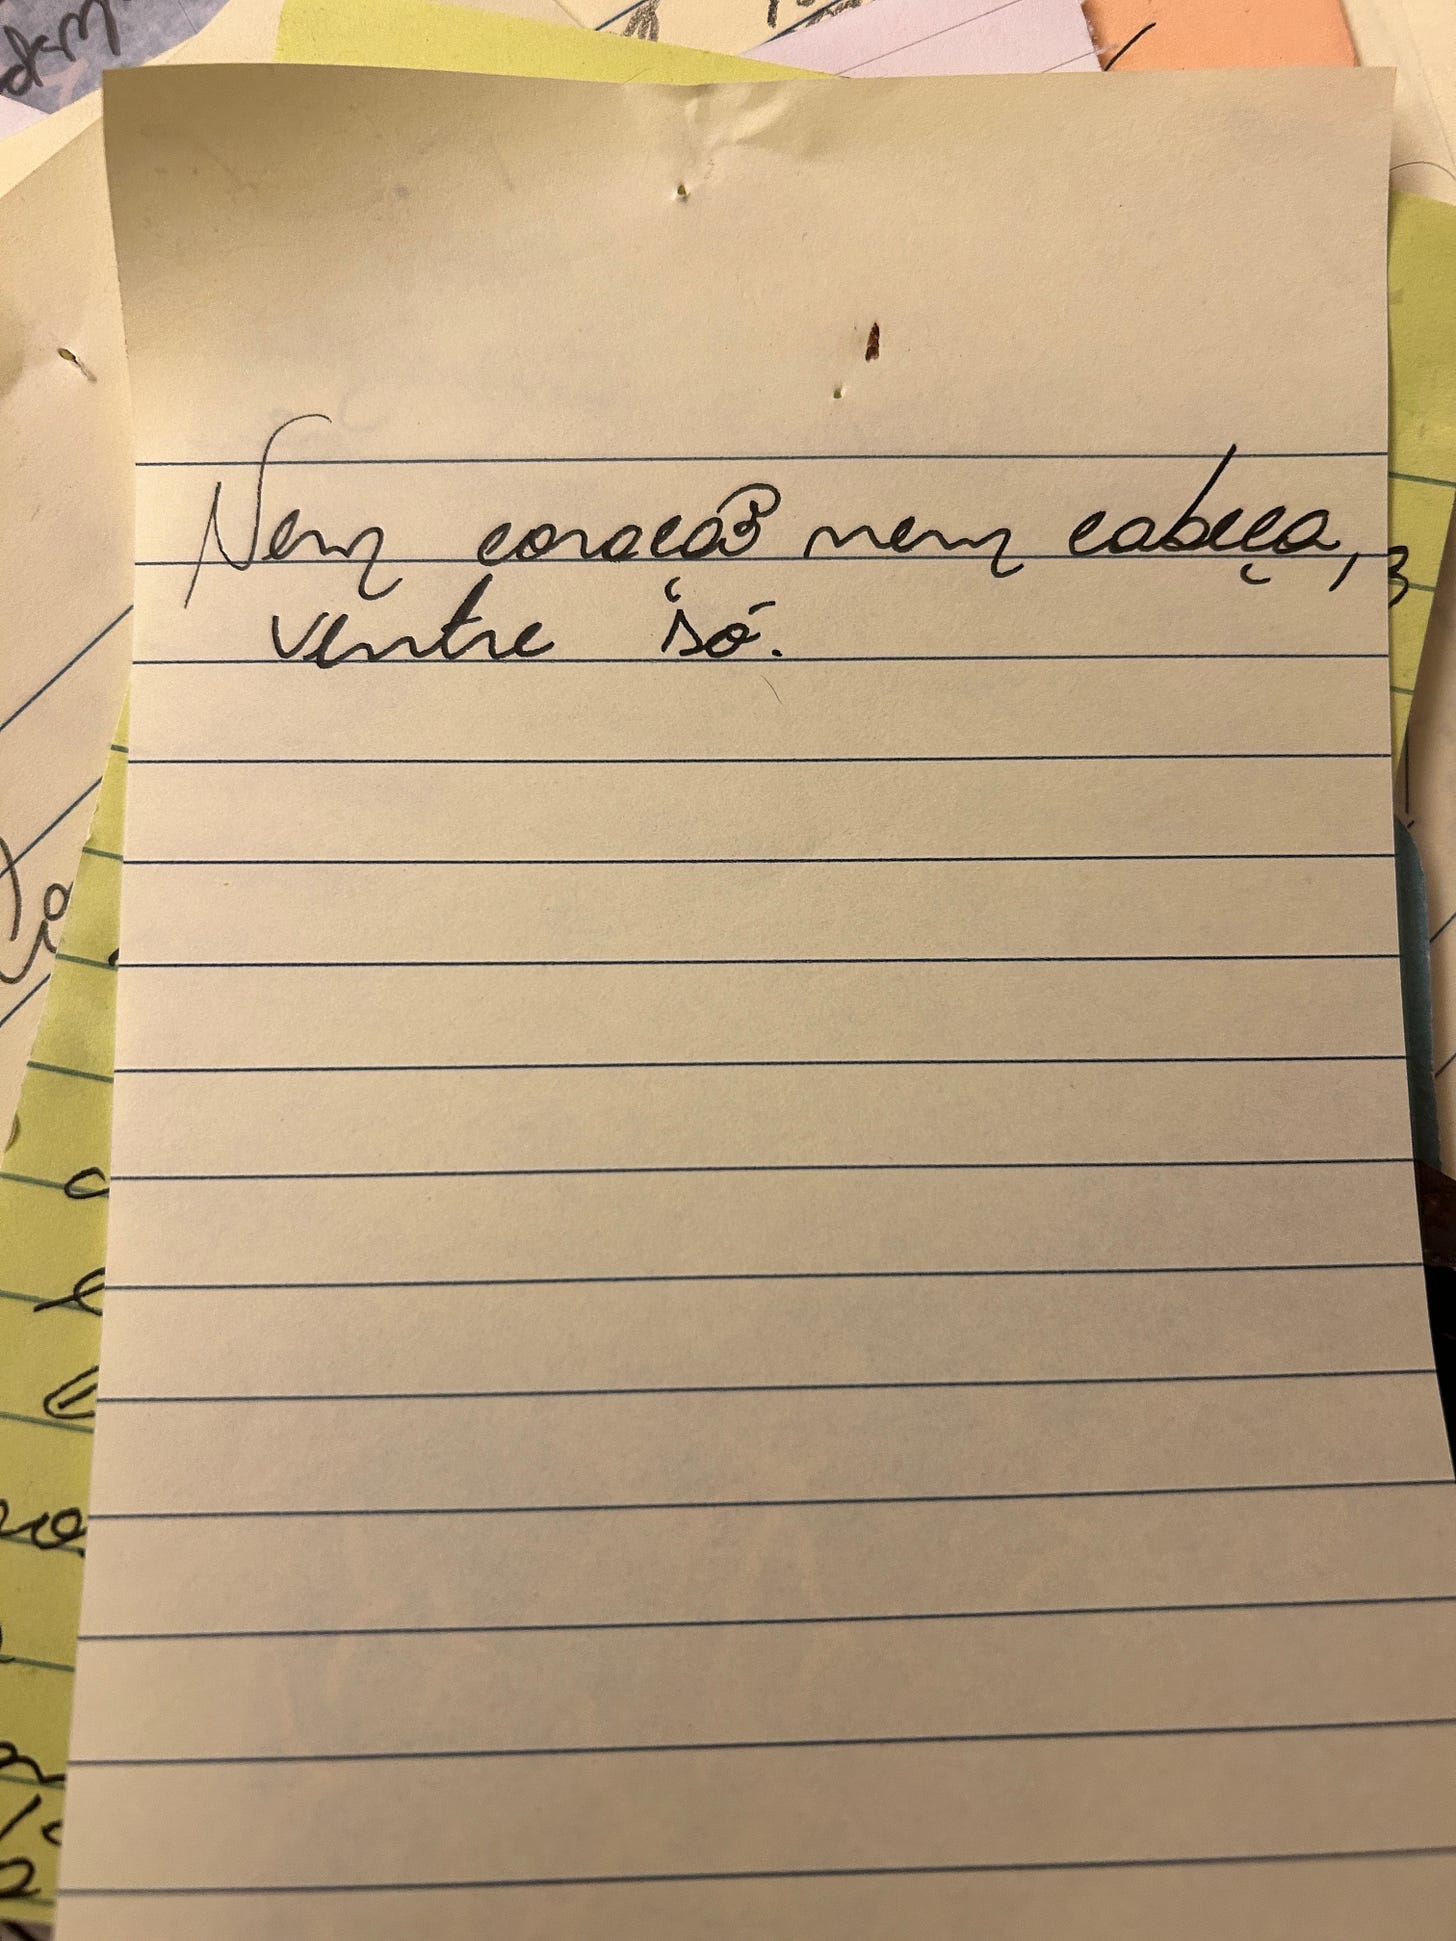 Nem coração nem cabeça,
ventre só.